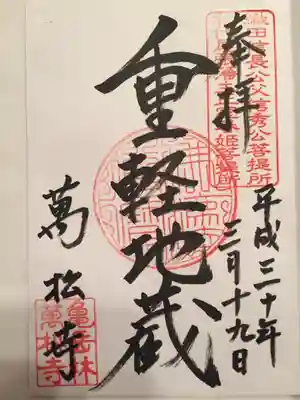 奉拝
織田信長公父信秀公菩提所
平成三十年
三月十九日
重軽地蔵
萬松寺
亀岳林
萬松寺